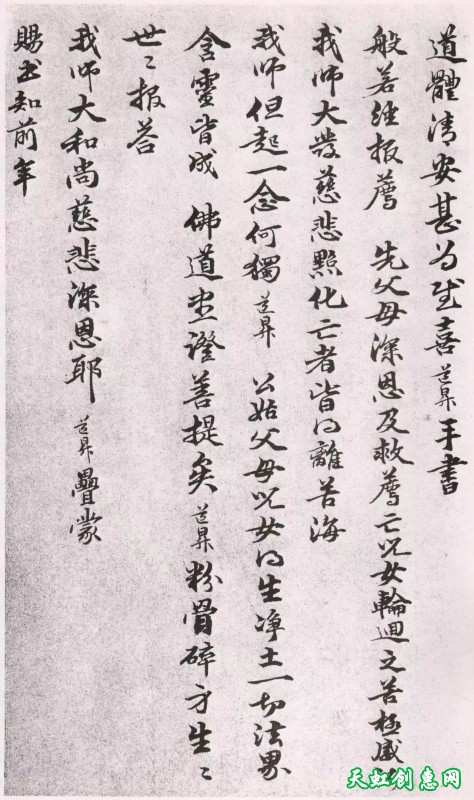 道體清安甚为至喜道昇手書
般若經报薦 先父母深恩及救薦亡兒女輪迴之苦极感
我師大發慈悲點化亡者皆得離苦海
我師但起一念何獨道昇 公姑父母兒女得生净土一切法界
含靈皆成 佛道盡證菩提矣道昇粉骨碎身生〻
世〻报答
我師大和尚慈悲深恩耶道昇疊蒙
賜书知前年
天虹创惠网